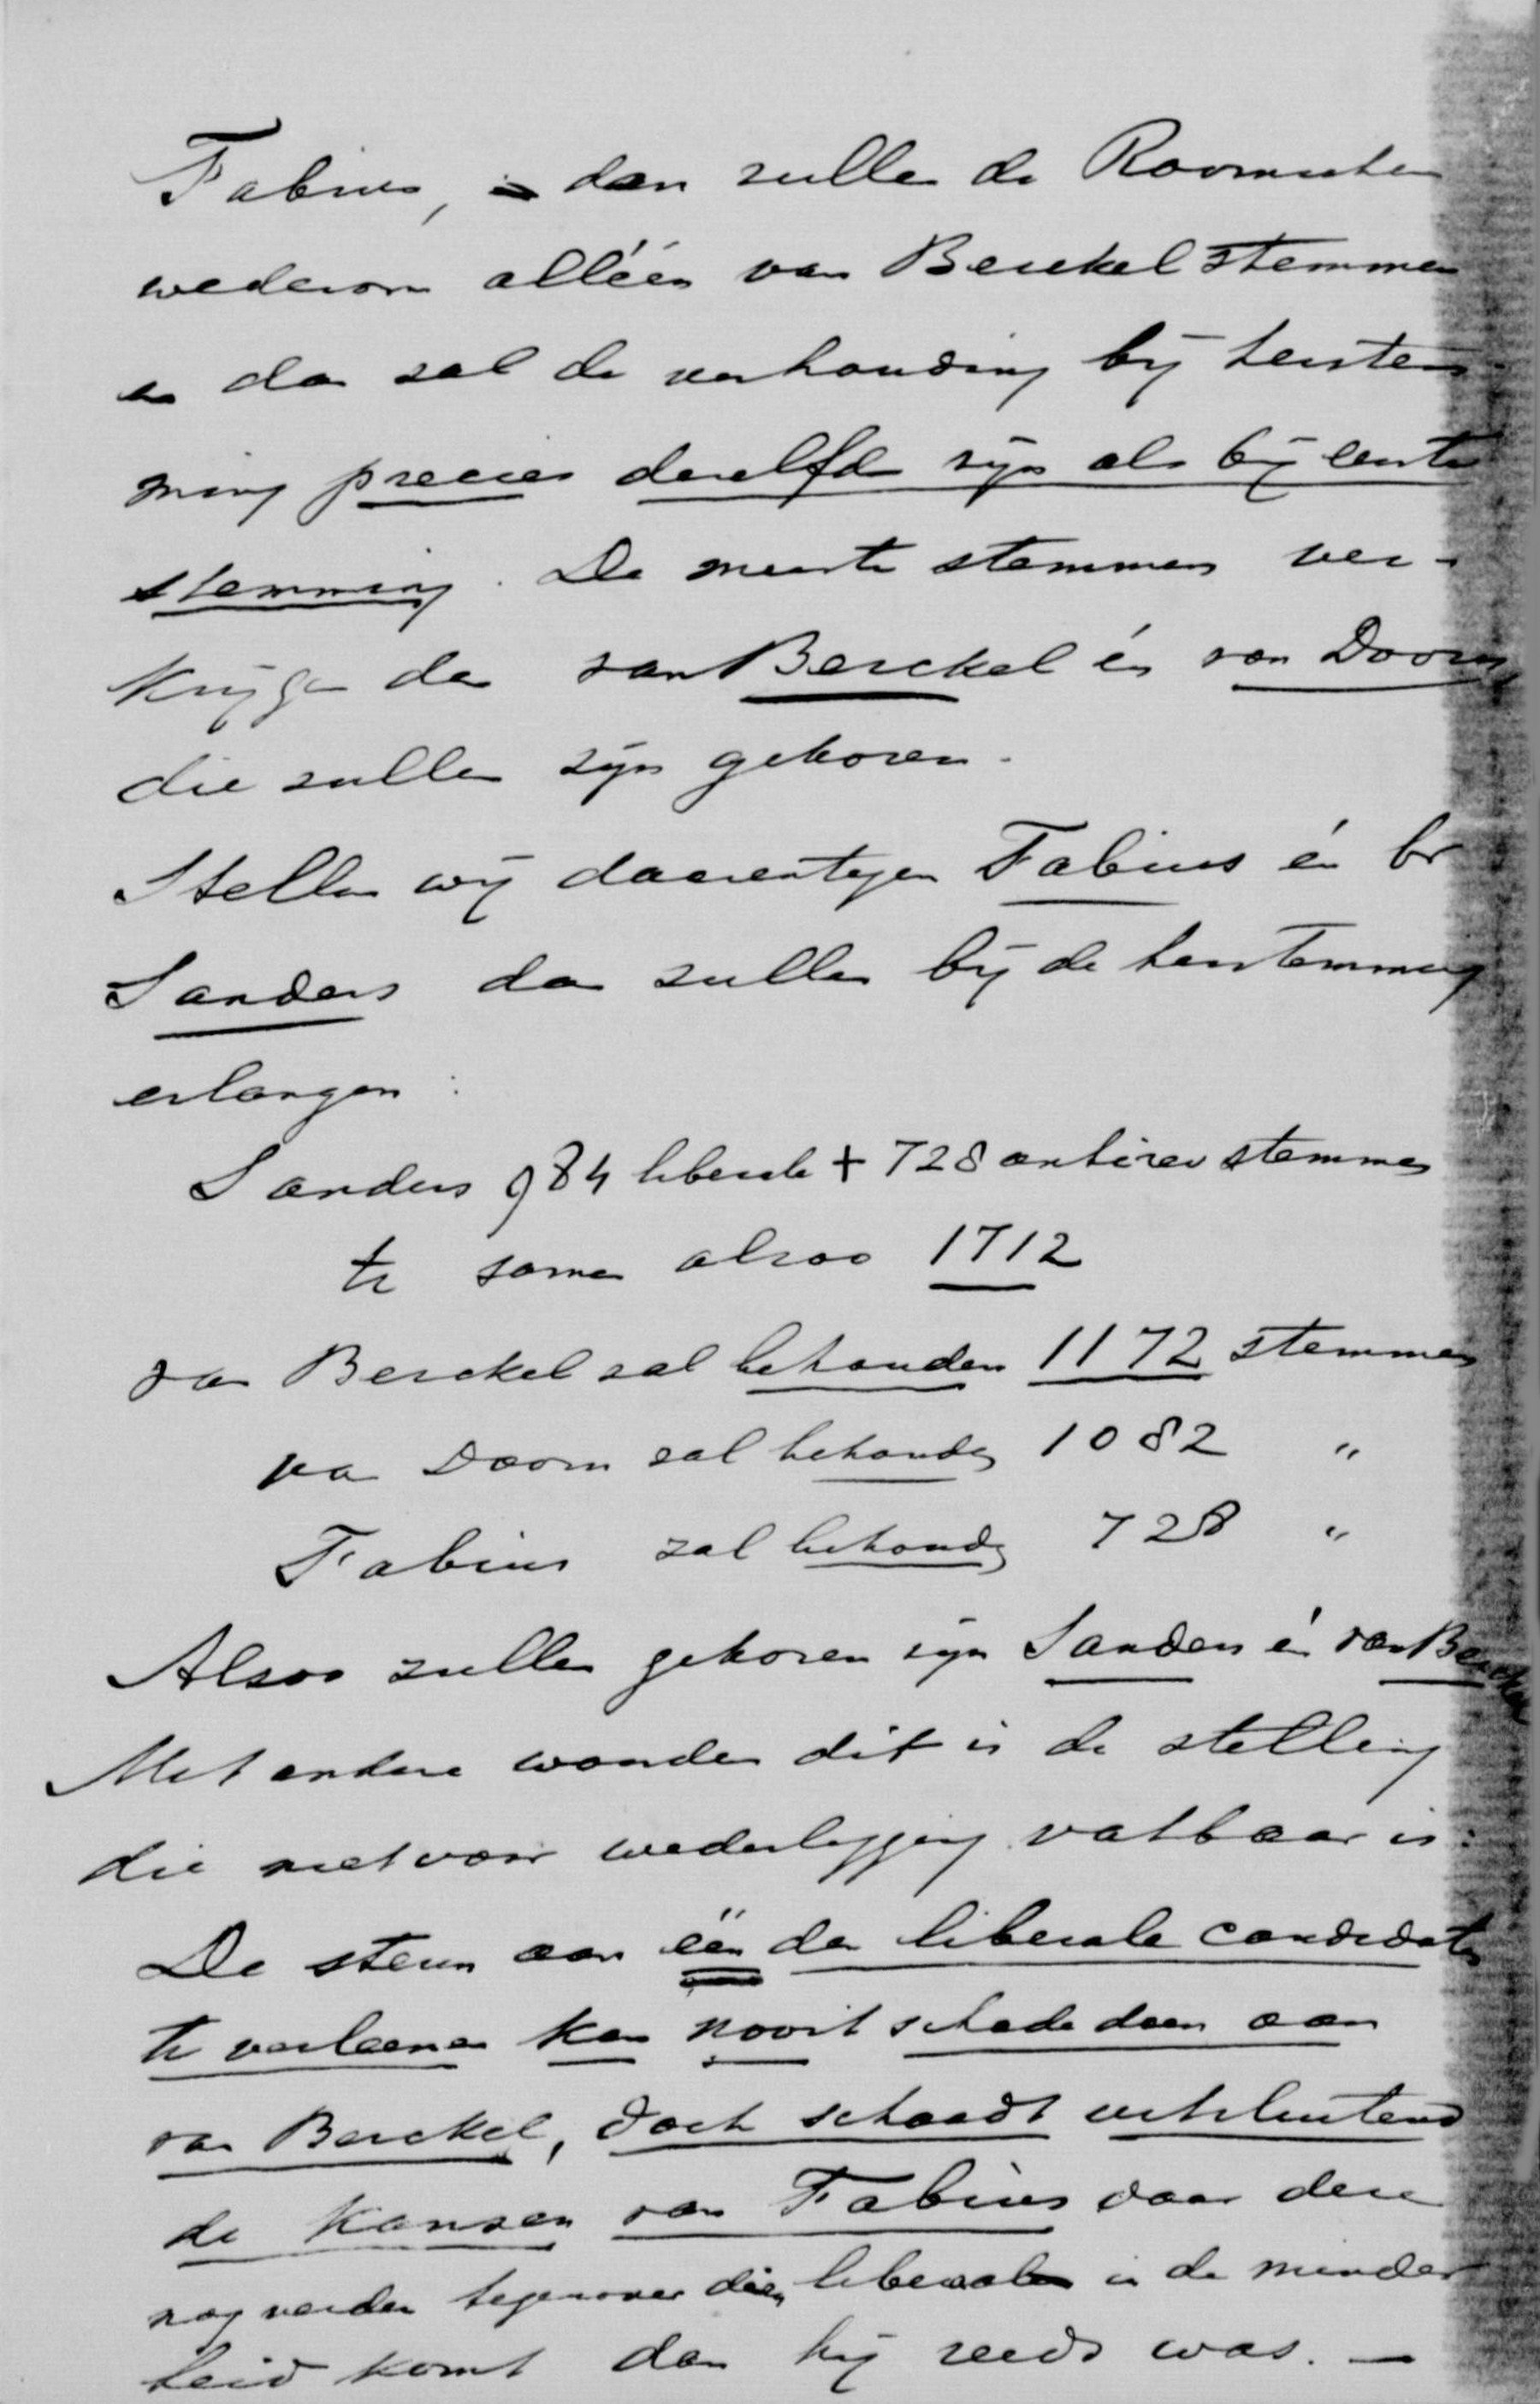 Fabius, dan zullen de Roomschen
wederom alléén van Berckel stemmen
en dan zal de verhouding bij herstem-
ming precies dezelfde zijn als bij eerste
stemming. De meeste stemmen ver-
krijgen dan van Berckel én van Doorn
die zullen zijn gekozen.
Stellen wij daarentegen Fabius én br
Sanders dan zullen bij de herstemming
erlangen :
Sanders 984 liberale + 728 antirev stemmen
te samen alzoo 1712
van Berckel zal behouden 1172 stemmen
van Doorn zal behouden 1082 "
Fabius zal behouden 728 "
Alzoo zullen gekozen zijn Sanders én van Berckel
Met andere woorden dit is de stelling
die niet voor wederlegging vatbaar is:
De steun aan één der liberale candidaten
te verleenen kan nooit schade doen aan
van Berckel, doch schaadt uitsluitend
de kansen van Fabius daar deze
nog verder tegenover dien liberaal in de minder
heid komt dan hij reeds was. —